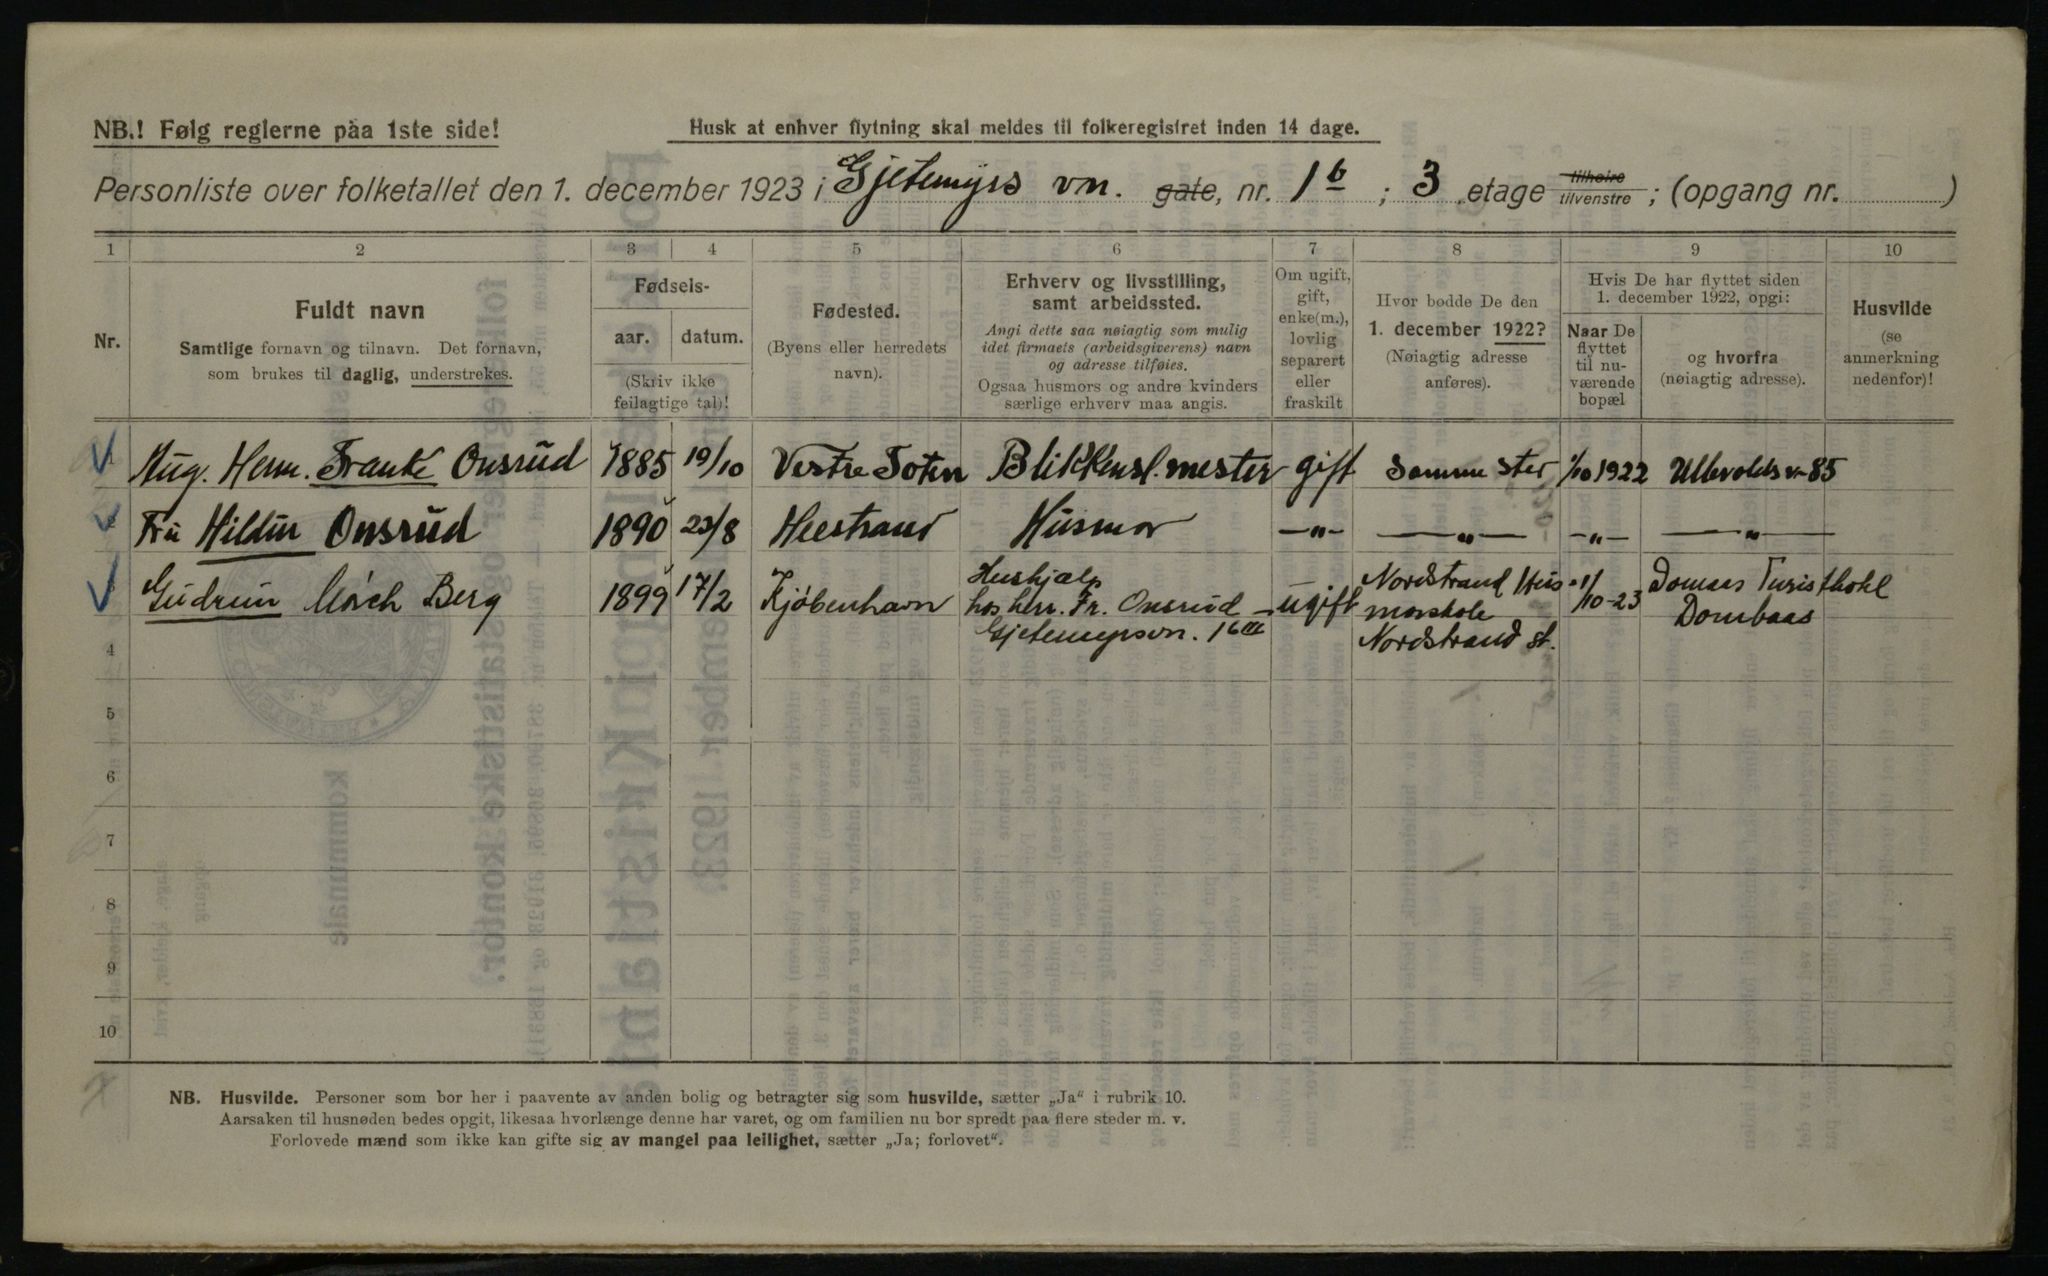 NB.! Følg reglerne paa 1ste side!
Husk at enhver flytning skal meldes til folkeregistret inden 14 dage.
Personliste over folketallet den 1. december 1923 i Gjetemyrs vn. gate, nr. 1b ; 3 etage tilhøire tilvenstre ; (opgang nr. )
1 2 3 4 5 6 7 8 9 10
Nr.
Fuldt navn
Samtlige fornavn og tilnavn. Det fornavn,
som brukes til daglig, understrekes.
Fødsels-
aar. datum.
(Skriv ikke
feilagtige tal)!
Fødested.
(Byens eller herredets
navn).
Erhverv og livsstilling,
samt arbeidssted.
Angi dette saa nøiagtig som mulig
idet firmaets (arbeidsgiverens) navn
og adresse tilføies.
Ogsaa husmors og andre kvinders
særlige erhverv maa angis.
Om ugift,
gift,
enke(m.),
lovlig
separert
eller
fraskilt
Hvor bodde De den
1. december 1922?
(Nøiagtig adresse
anføres).
Hvis De har flyttet siden
1. december 1922, opgi:
Naar De
flyttet
til nu-
værende
bopæl
og hvorfra
(nøiagtig adresse).
Husvilde
(se
anmerkning
nedenfor)!
1 Aug. Herm. Franke Onsrud 1885 19/10 Vestre Toten Blikkensl. mester gift Samme sted 1/10 1922 Ullevoldsv 85
2 Fru Hildur Onsrud 1890 23/8 Heestrand Husmor —„— —„— —„— —„—
3 Gudrun Mörch Berg 1899 17/2 Kjøbenhavn Hushjælp
hos herr. Fr. Onsrud
Gjetemyrsvn. 1b III
ugift Nordstrand Hus
morskole
Nordstrand st.
1/10-23 Domaas Turisthotel
Dombaas
4
5
6
7
8
9
10
NB. Husvilde. Personer som bor her i paavente av anden bolig og betragter sig som husvilde, sætter „Ja“ i rubrik 10.
Aarsaken til husnøden bedes opgit, likesaa hvorlænge denne har varet, og om familien nu bor spredt paa flere steder m. v.
Forlovede mænd som ikke kan gifte sig av mangel paa leilighet, sætter „Ja; forlovet“.